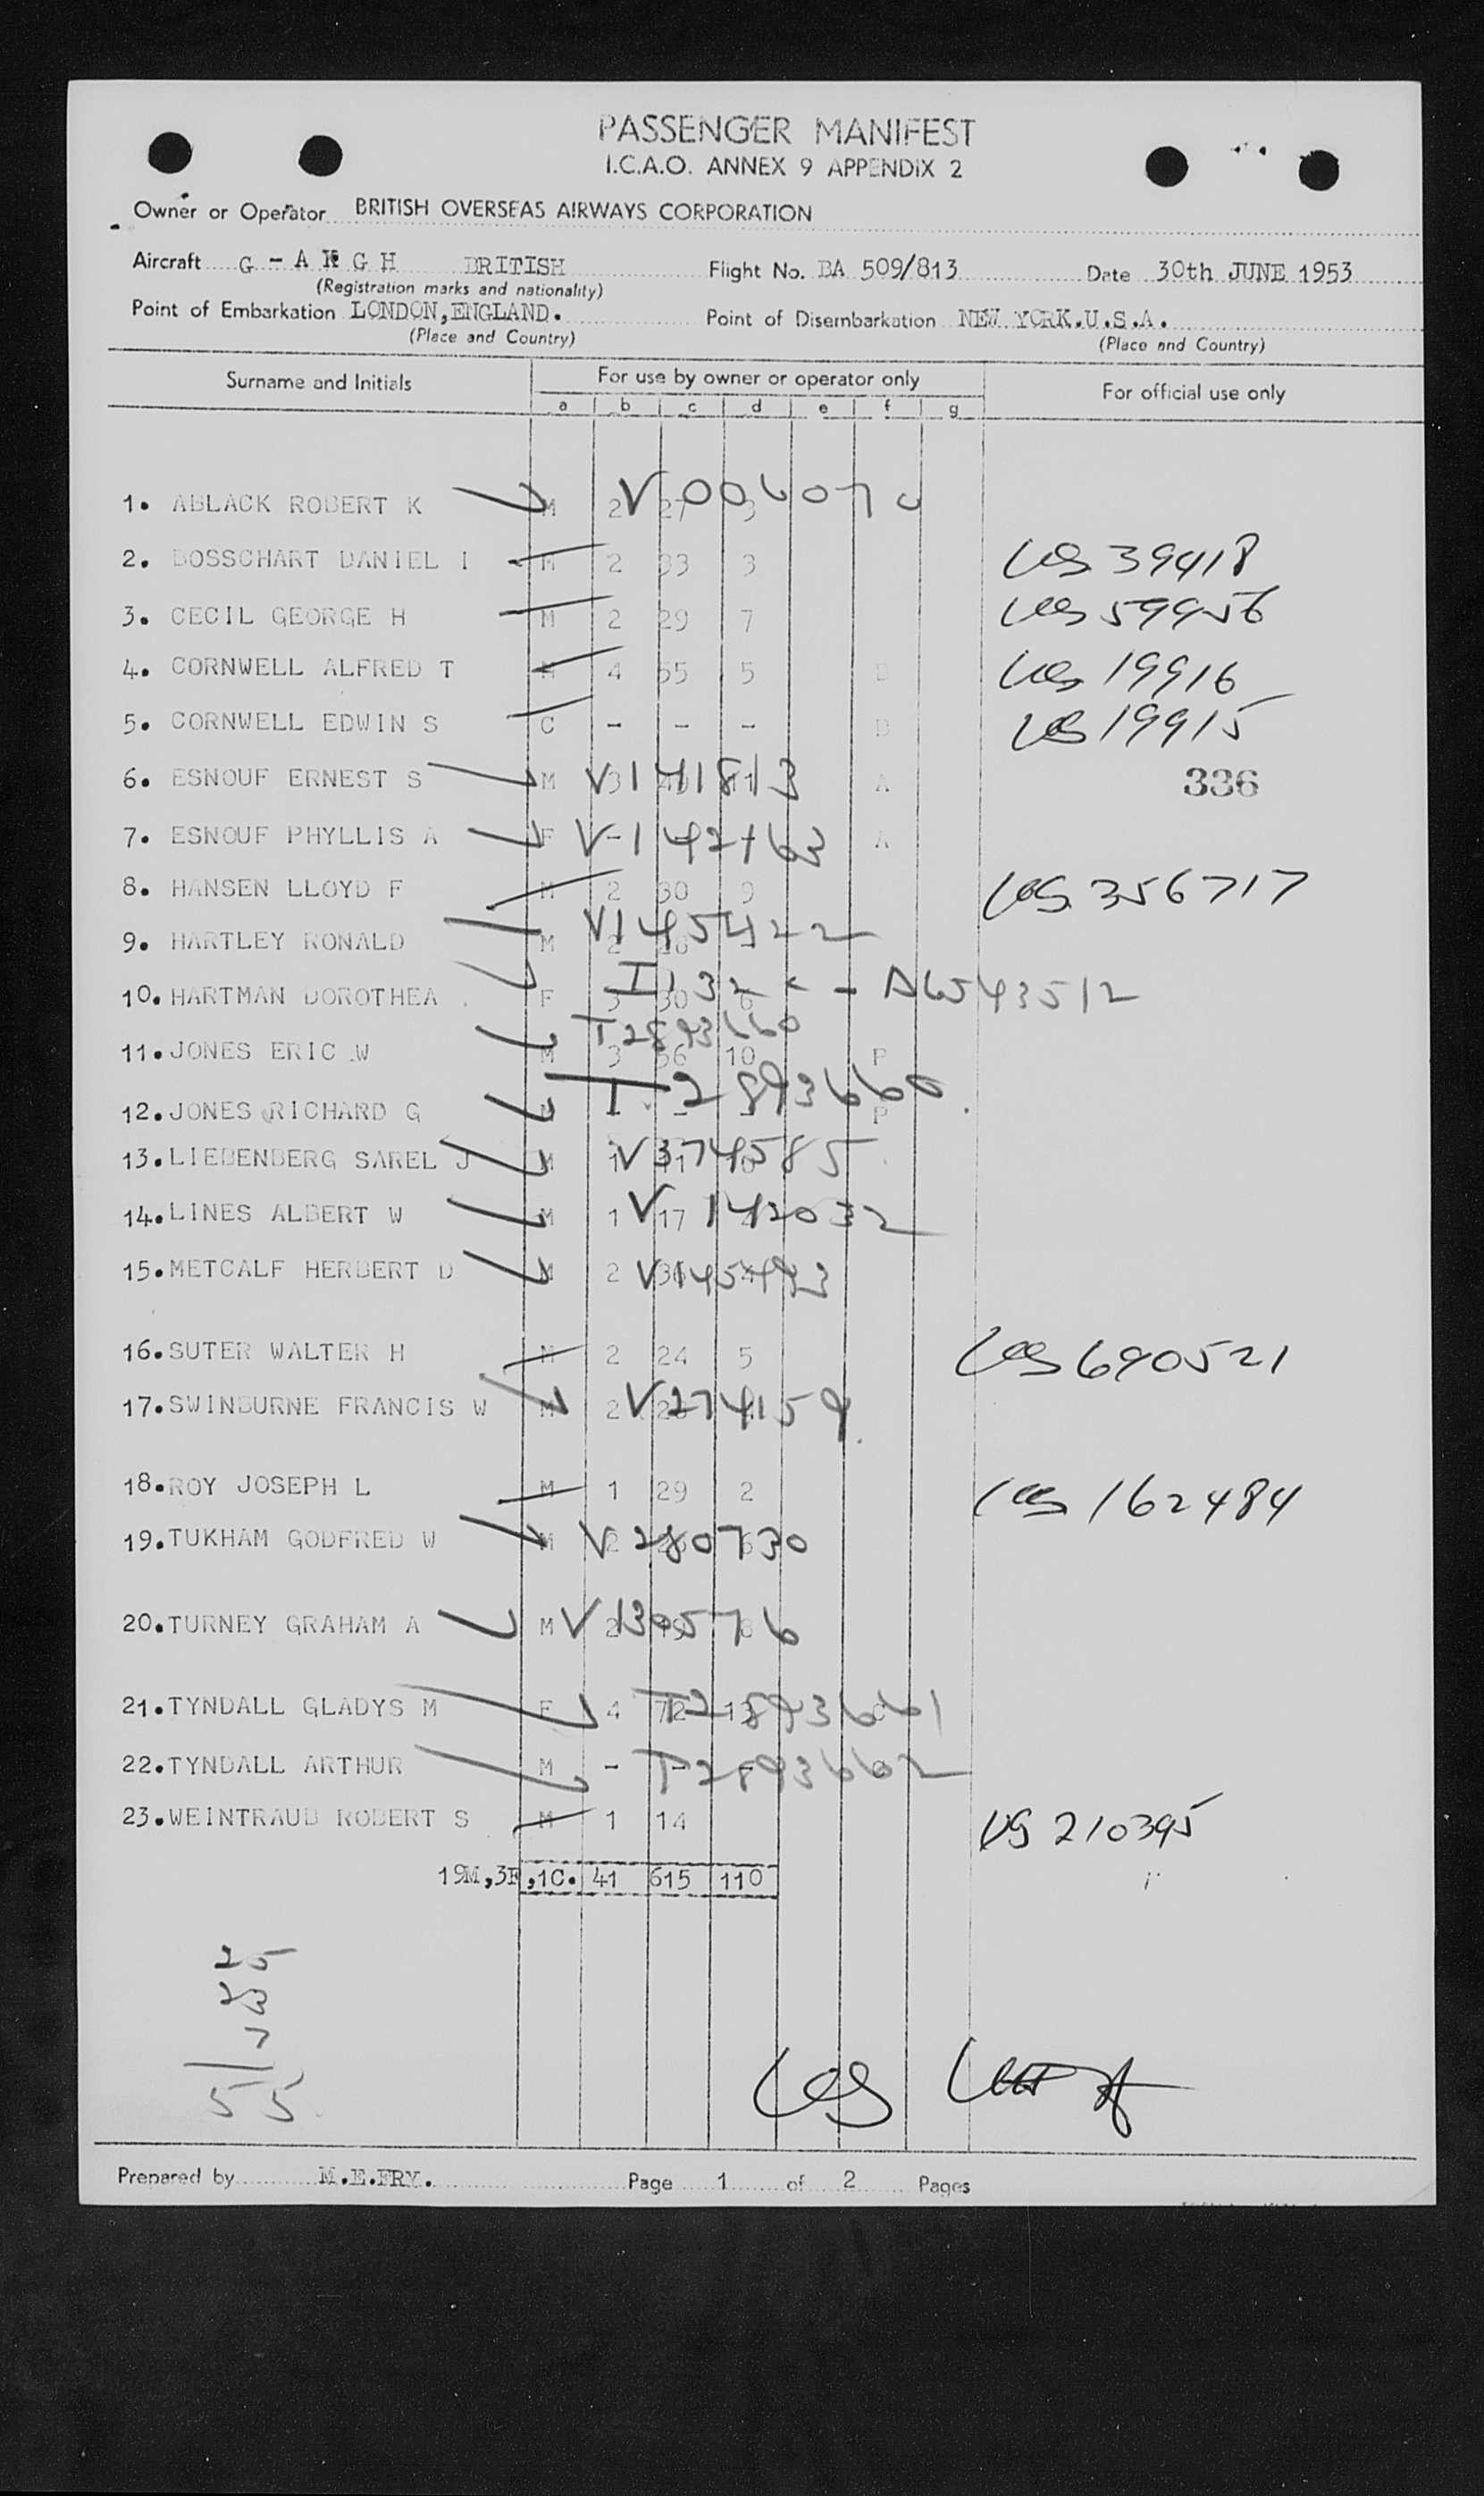 PASSENGER MANIFEST
I.C.A.O. ANNEX 9 APPENDIX 2
Owner or Operator BRITISH OVERSEAS AIRWAYS CORPORATION
Aircraft G - A K G H BRITISH Flight No. BA 509/813 Date 30th JUNE 1953
(Registration marks and nationality)
Point of Embarkation LONDON,ENGLAND. Point of Disembarkation NEW YORK.U.S.A.
(Place and Country) (Place and Country)
Surname and Initials For use by owner or operator only For official use only
a b c d e f g
1. ABLACK ROBERT K M 2 27 3
2. BOSSCHART DANIEL I M 2 33 3 US 39418
3. CECIL GEORGE H M 2 29 7 US 59956
4. CORNWELL ALFRED T M 4 55 5 B US 19916
5. CORNWELL EDWIN S C - - - B US 19915
6. ESNOUF ERNEST S M V141813 A 336
7. ESNOUF PHYLLIS A F V-142163 A
8. HANSEN LLOYD F M 2 30 9 US 356717
9. HARTLEY RONALD M V145422
10. HARTMAN DOROTHEA F 3 30 6 A6543512
11. JONES ERIC W M 3 56 10 P T2893660
12. JONES RICHARD G M P T-2893660
13. LIEBENBERG SAREL J M 1 V374585
14. LINES ALBERT W M 1 17 V142032
15. METCALF HERBERT D M 2 V145493
16. SUTER WALTER H M 2 24 5 US 690521
17. SWINBURNE FRANCIS W M 2 V274159
18. ROY JOSEPH L M 1 29 2 US 162484
19. TUKHAM GODFRED W M 2 V280730
20. TURNEY GRAHAM A M 2 V1305776
21. TYNDALL GLADYS M F 4 72 13 T2893661
22. TYNDALL ARTHUR M - T2893662
23. WEINTRAUB ROBERT S M 1 14 US 210395
19M,3F,1C. 41 615 110
25
23
7
55
US
Prepared by M.E.FRY. Page 1 of 2 Pages